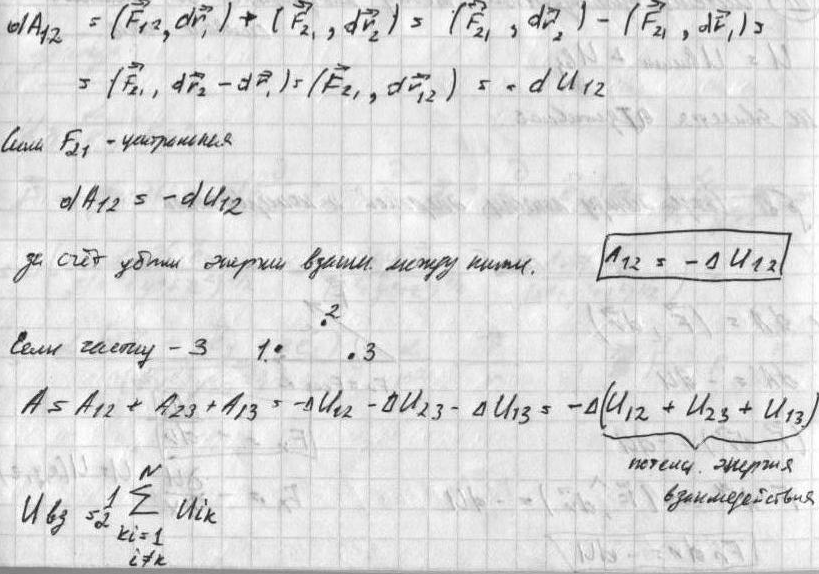 dA₁₂ = (F⃗₁₂, dr⃗₁) + (F⃗₂₁, dr⃗₂) = (F⃗₂₁, dr⃗₂) − (F⃗₂₁, dr⃗₁) =
= (F⃗₂₁, dr⃗₂ − dr⃗₁) = (F⃗₂₁, dr⃗₁₂) = - dU₁₂
Если F₂₁ - центральная
dA₁₂ = −dU₁₂
за счёт убыли энергии взаим. между ними.
A₁₂ = −Δ U₁₂
Если частиц – 3 1. .2 .3
A = A₁₂ + A₂₃ + A₁₃ = −ΔU₁₂ − ΔU₂₃ − ΔU₁₃ = −Δ(U₁₂ + U₂₃ + U₁₃)
потенц. энергия
взаимодействия
U вз = 1/2 ∑ Uik
N
ki=1
i≠k